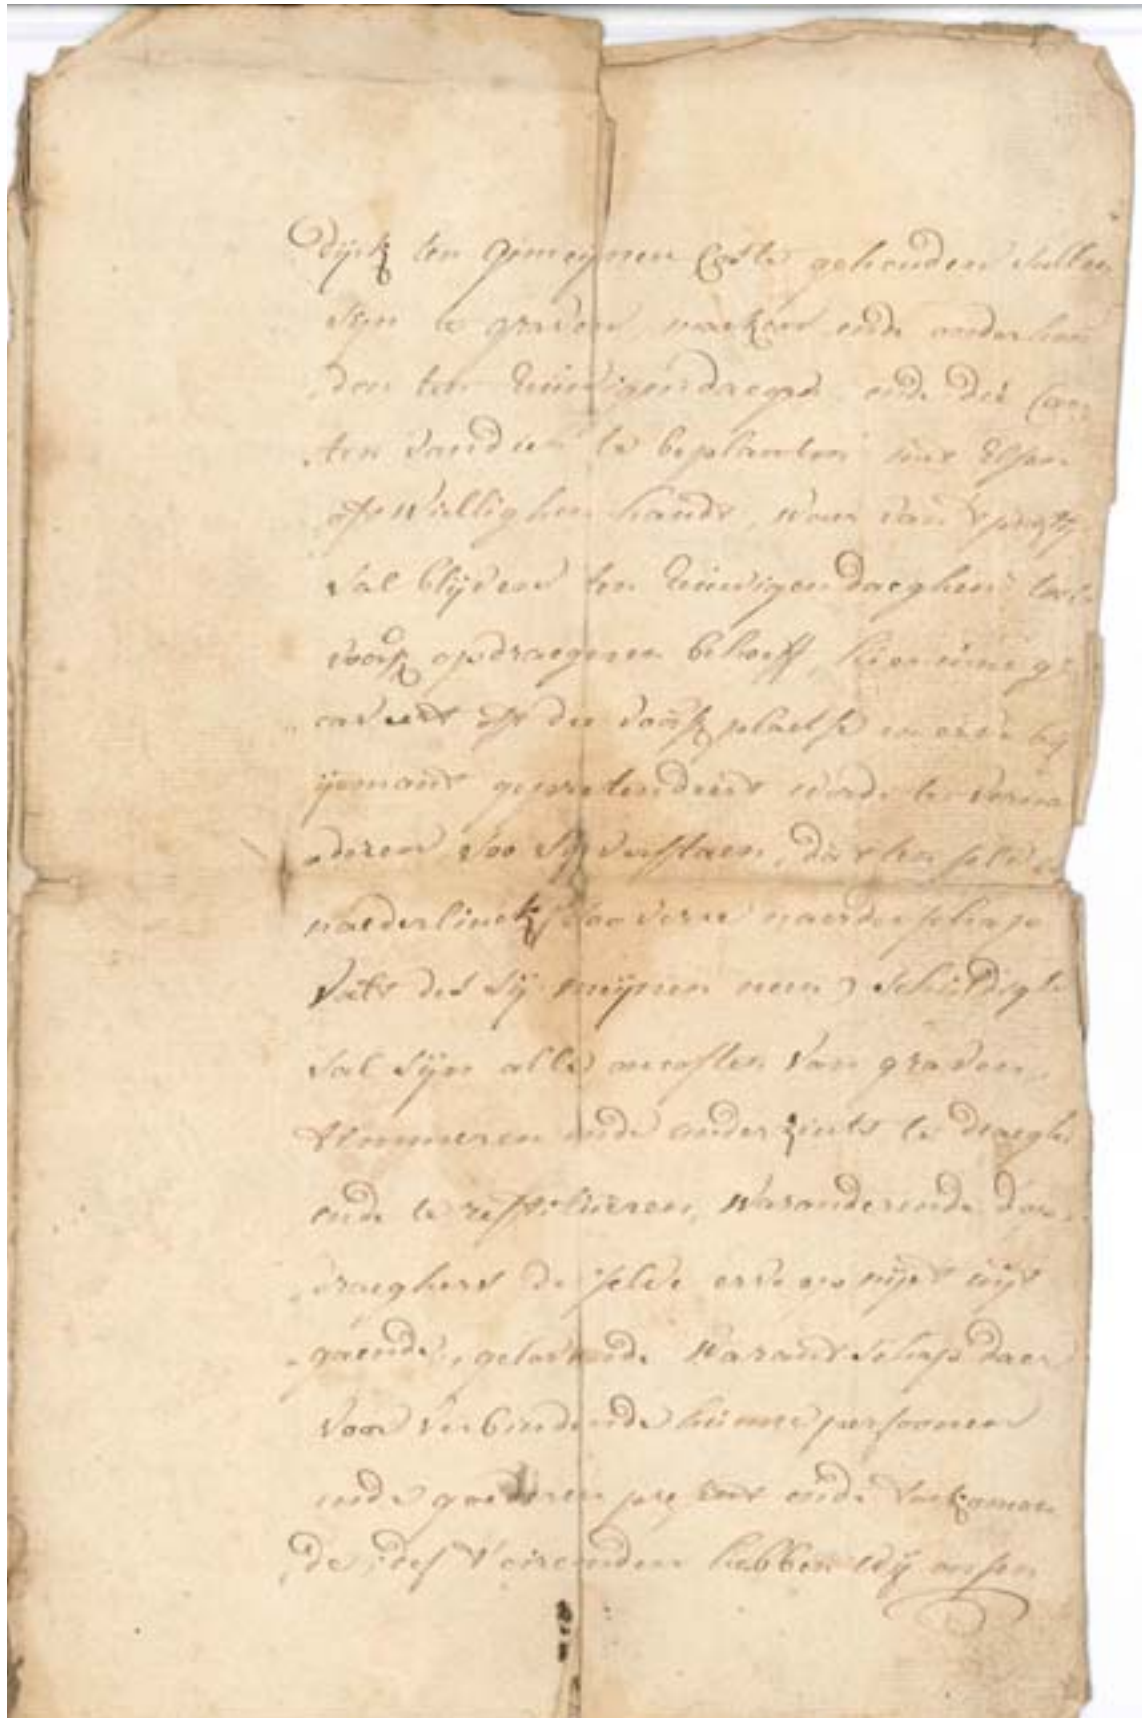 dijck ten gemeynen Coste gehouden sullen
sijn te graven, maecken ende onderhou
den ten Eeuwigendaegen, ende die
van dien te beplanten met Elsen
oft willighen haudt, waer van
sal blijven ten Eeuwigen daeghen tot
voors opdraegeren behoeff, hier inne
oft die voors plaetse
ijemant gepretendeert worde te verna
deren soo sij verstaen, dat
naederlinck soo verre naerderschap
valt des sij meijnen neen) schuldigh
sal sijn alle oncosten van graven
timmeren ende andersints te draeghe
ende te restitueren, waranderende
draeghers de selve erve niet uijt
gaende, gelovende Warantschap daer
voor verbindende hunne persoonen
ende goederen present ende toecomen
de, des t'oirconden hebben wij onsen